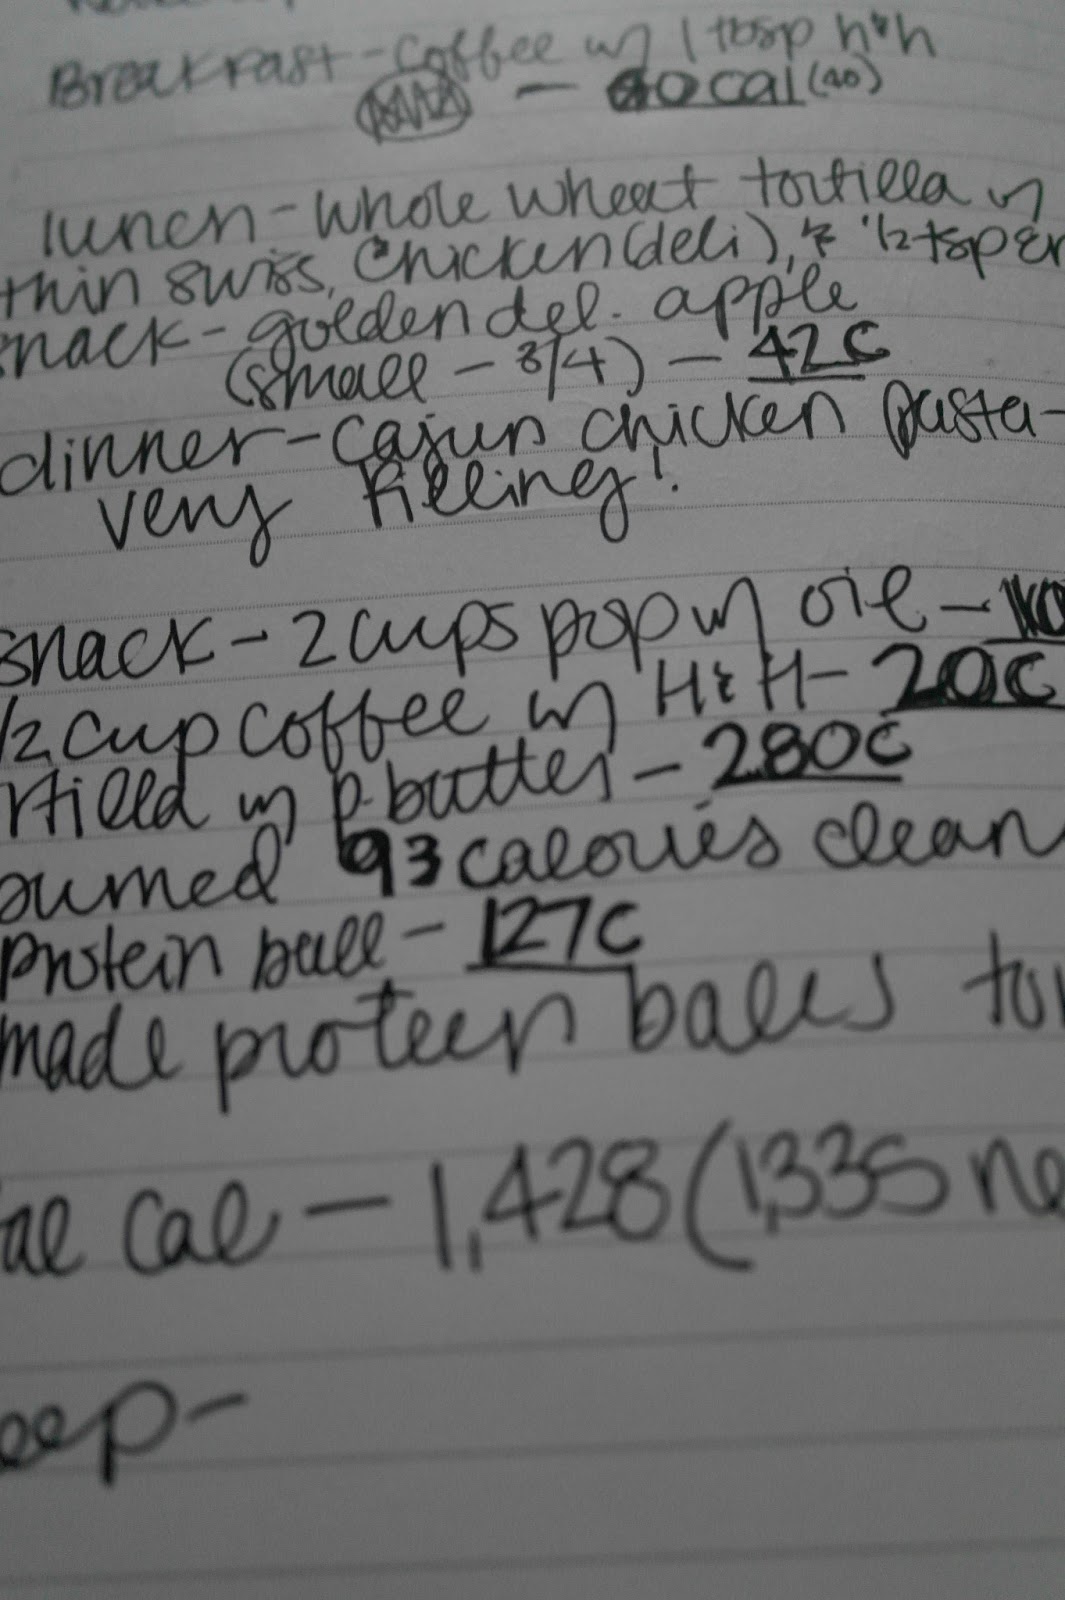 Breakfast - coffee w/ 1 tbsp h&h
- 40 cal (40)
lunch - whole wheat tortilla w/
thin swiss, chicken (deli), & 1/2 tsp
snack - golden del. apple
(small - 3/4) - 42c
dinner - cajun chicken pasta -
very filling!
snack - 2 cups pop w/ oil -
1/2 cup coffee w/ H&H - 20c
rtilla w/ p. butter - 280c
burned 93 calories clean
protein ball - 127c
made protein balls to
al cal - 1,428 (1,335 ne
eep -